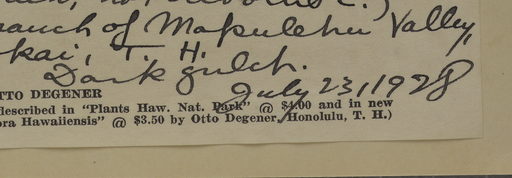 ranch of Mapulehu Valley,
okai, T. H.
Dark gulch.
July 23, 1928
TTO DEGENER
described in "Plants Haw. Nat. Park" @ $4.00 and in new
ora Hawaiiensis" @ $3.50 by Otto Degener, Honolulu, T. H.)